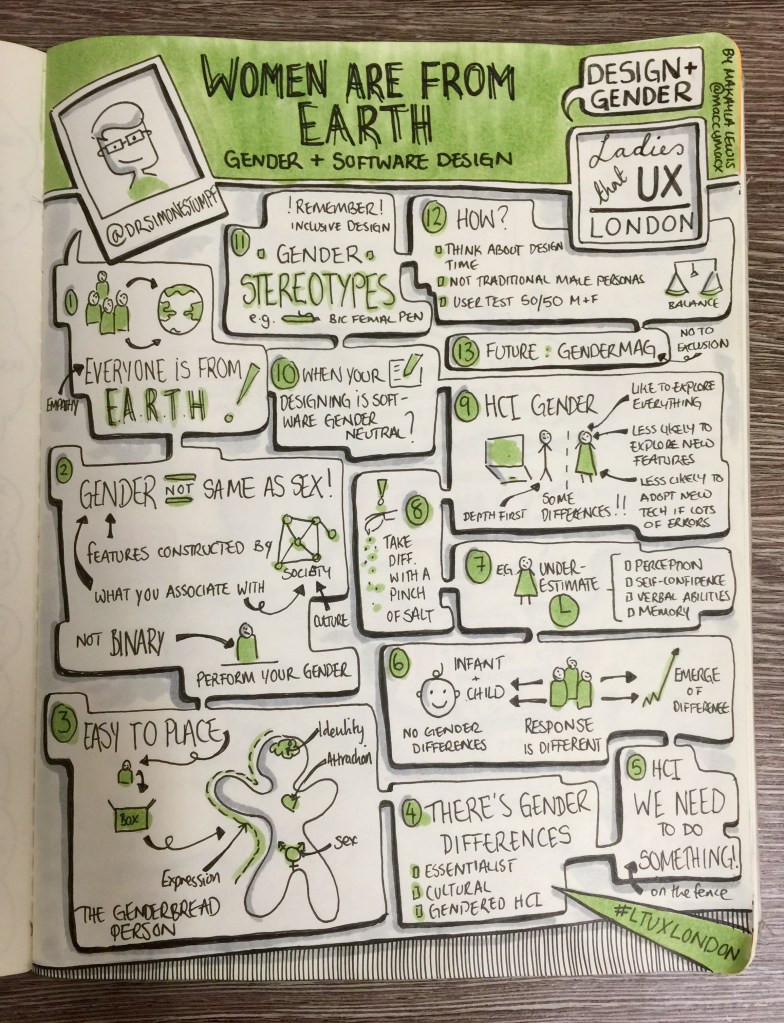 WOMEN ARE FROM
EARTH
GENDER + SOFTWARE DESIGN
DESIGN +
GENDER
BY MAKAYLA LEWIS
@maccymacx
Ladies
that UX
LONDON
@DRSIMONESTUMPF
1
EVERYONE IS FROM
E.A.R.T.H!
EMPATHY
2
GENDER NOT SAME AS SEX!
FEATURES CONSTRUCTED BY
SOCIETY
WHAT YOU ASSOCIATE WITH
CULTURE
NOT BINARY
PERFORM YOUR GENDER
3 EASY TO PLACE
BOX
Identity
Attraction
Sex
Expression
THE GENDERBREAD
PERSON
4 THERE'S GENDER
DIFFERENCES
ESSENTIALIST
CULTURAL
GENDERED HCI
5 HCI
WE NEED
TO DO
SOMETHING!
on the fence
6
INFANT
+
CHILD
NO GENDER
DIFFERENCES
RESPONSE
IS DIFFERENT
EMERGE
OF
DIFFERENCE
7 EG. UNDER-
ESTIMATE
PERCEPTION
SELF-CONFIDENCE
VERBAL ABILITIES
MEMORY
!
8
TAKE
DIFF.
WITH A
PINCH
OF SALT
9 HCI GENDER
LIKE TO EXPLORE
EVERYTHING
LESS LIKELY TO
EXPLORE NEW
FEATURES
LESS LIKELY TO
ADOPT NEW
TECH IF LOTS
OF ERRORS
DEPTH FIRST
SOME
DIFFERENCES!!
10 WHEN YOUR
DESIGNING IS SOFT-
WARE GENDER
NEUTRAL?
! REMEMBER!
INCLUSIVE DESIGN
11
GENDER
STEREOTYPES
e.g. BIC FEMAL PEN
12 HOW?
THINK ABOUT DESIGN
TIME
NOT TRADITIONAL MALE PERSONAS
USER TEST 50/50 M+F
BALANCE
13 FUTURE : GENDERMAG
NO TO
EXCLUSION
#LTUXLONDON